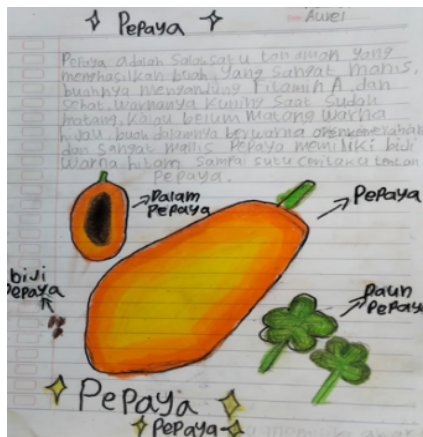 Aurel
Pepaya
Pepaya adalah salah satu tanaman yang
menghasilkan buah yang sangat manis,
buahnya mengandung Fitamin A dan
sehat. warnanya kuning saat sudah
matang, kalau belum matang warna
hijau. buah dalamnya berwarna
dan sangat manis Pepaya memiliki biji
warna hitam sampai
Pepaya.
Dalam
Pepaya
Pepaya
biji
Pepaya
Daun
Pepaya
Pepaya
Pepaya